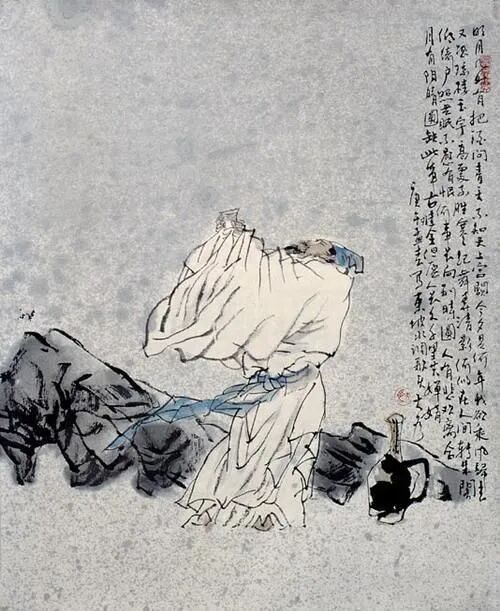 明月几时有把酒问青天不知天上宫闕今夕是何年我欲乘风歸去
又恐瓊楼玉宇高處不胜寒起舞弄清影何似在人间轉朱閣
低绮户照無眠不應有恨何事長向别時圆人有悲欢离合
月有阴晴圆缺此事古难全但愿人長久千里共婵娟
庚午孟春写東坡水调歌头